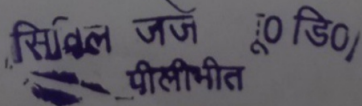 सिविल जज जू0 डि0/
पीलीभीत